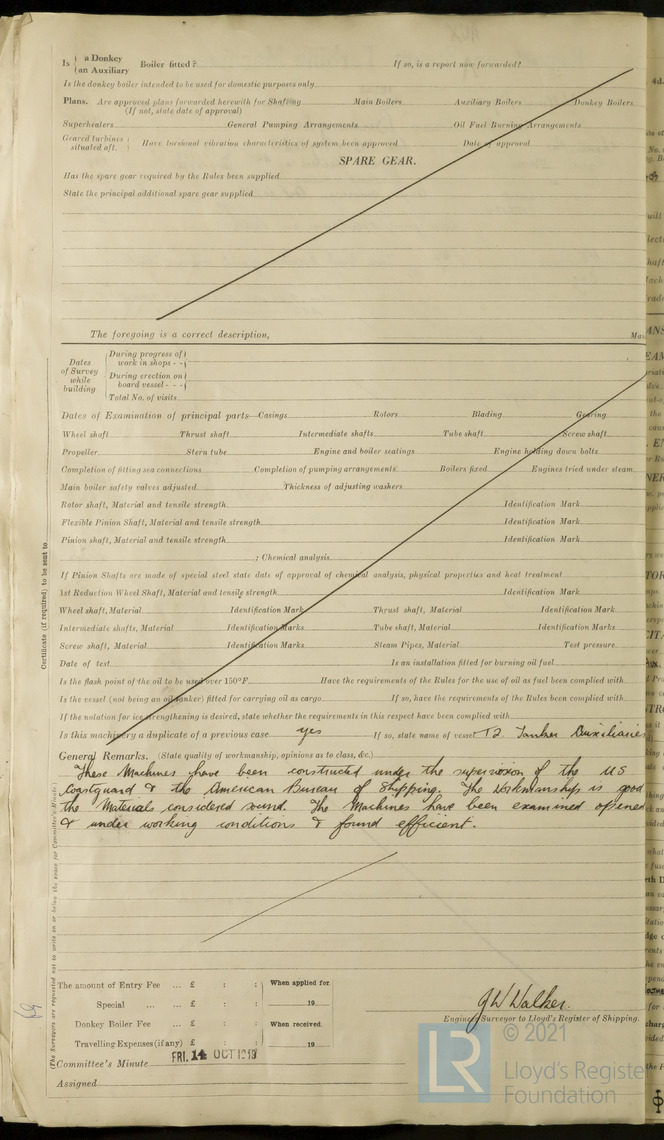 Is { a Donkey / an Auxiliary } Boiler fitted? If so, is a report now forwarded?
Is the donkey boiler intended to be used for domestic purposes only
Plans. Are approved plans forwarded herewith for Shafting Main Boilers Auxiliary Boilers Donkey Boilers
(If not, state date of approval)
Superheaters General Pumping Arrangements Oil Fuel Burning Arrangements
Geared turbines situated aft. } Have torsional vibration characteristics of system been approved Date of approval
SPARE GEAR.
Has the spare gear required by the Rules been supplied
State the principal additional spare gear supplied
The foregoing is a correct description,
Dates of Survey while building
During progress of work in shops - -
During erection on board vessel - - -
Total No. of visits
Dates of Examination of principal parts—Casings Rotors Blading Gearing
Wheel shaft Thrust shaft Intermediate shafts Tube shaft Screw shaft
Propeller Stern tube Engine and boiler seatings Engine holding down bolts
Completion of fitting sea connections Completion of pumping arrangements Boilers fixed Engines tried under steam
Main boiler safety valves adjusted Thickness of adjusting washers
Rotor shaft, Material and tensile strength Identification Mark
Flexible Pinion Shaft, Material and tensile strength Identification Mark
Pinion shaft, Material and tensile strength Identification Mark
; Chemical analysis
If Pinion Shafts are made of special steel state date of approval of chemical analysis, physical properties and heat treatment
1st Reduction Wheel Shaft, Material and tensile strength Identification Mark
Wheel shaft, Material Identification Mark Thrust shaft, Material Identification Mark
Intermediate shafts, Material Identification Marks Tube shaft, Material Identification Marks
Screw shaft, Material Identification Marks Steam Pipes, Material Test pressure
Date of test Is an installation fitted for burning oil fuel
Is the flash point of the oil to be used over 150°F. Have the requirements of the Rules for the use of oil as fuel been complied with
Is the vessel (not being an oil tanker) fitted for carrying oil as cargo If so, have the requirements of the Rules been complied with
If the notation for ice strengthening is desired, state whether the requirements in this respect have been complied with
Is this machinery a duplicate of a previous case yes If so, state name of vessel T2 Tanker Auxiliaries
General Remarks. (State quality of workmanship, opinions as to class, &c.)
These Machines have been constructed under the supervision of the US
Coastguard & the American Bureau of Shipping. The Workmanship is good
the Materials considered sound. The Machines have been examined opened
& under working conditions & found efficient.
The amount of Entry Fee ... £ : : When applied for
Special ... ... £ : : 19
Donkey Boiler Fee ... £ : : When received
Travelling Expenses (if any) £ : : 19
J W Walker.
Engineer Surveyor to Lloyd's Register of Shipping.
Committee's Minute FRI. 14 OCT
Assigned
Certificate (if required) to be sent to
(The Surveyors are requested not to write on or below the space for Committee's Minute.)
© 2021
Lloyd's Register
Foundation